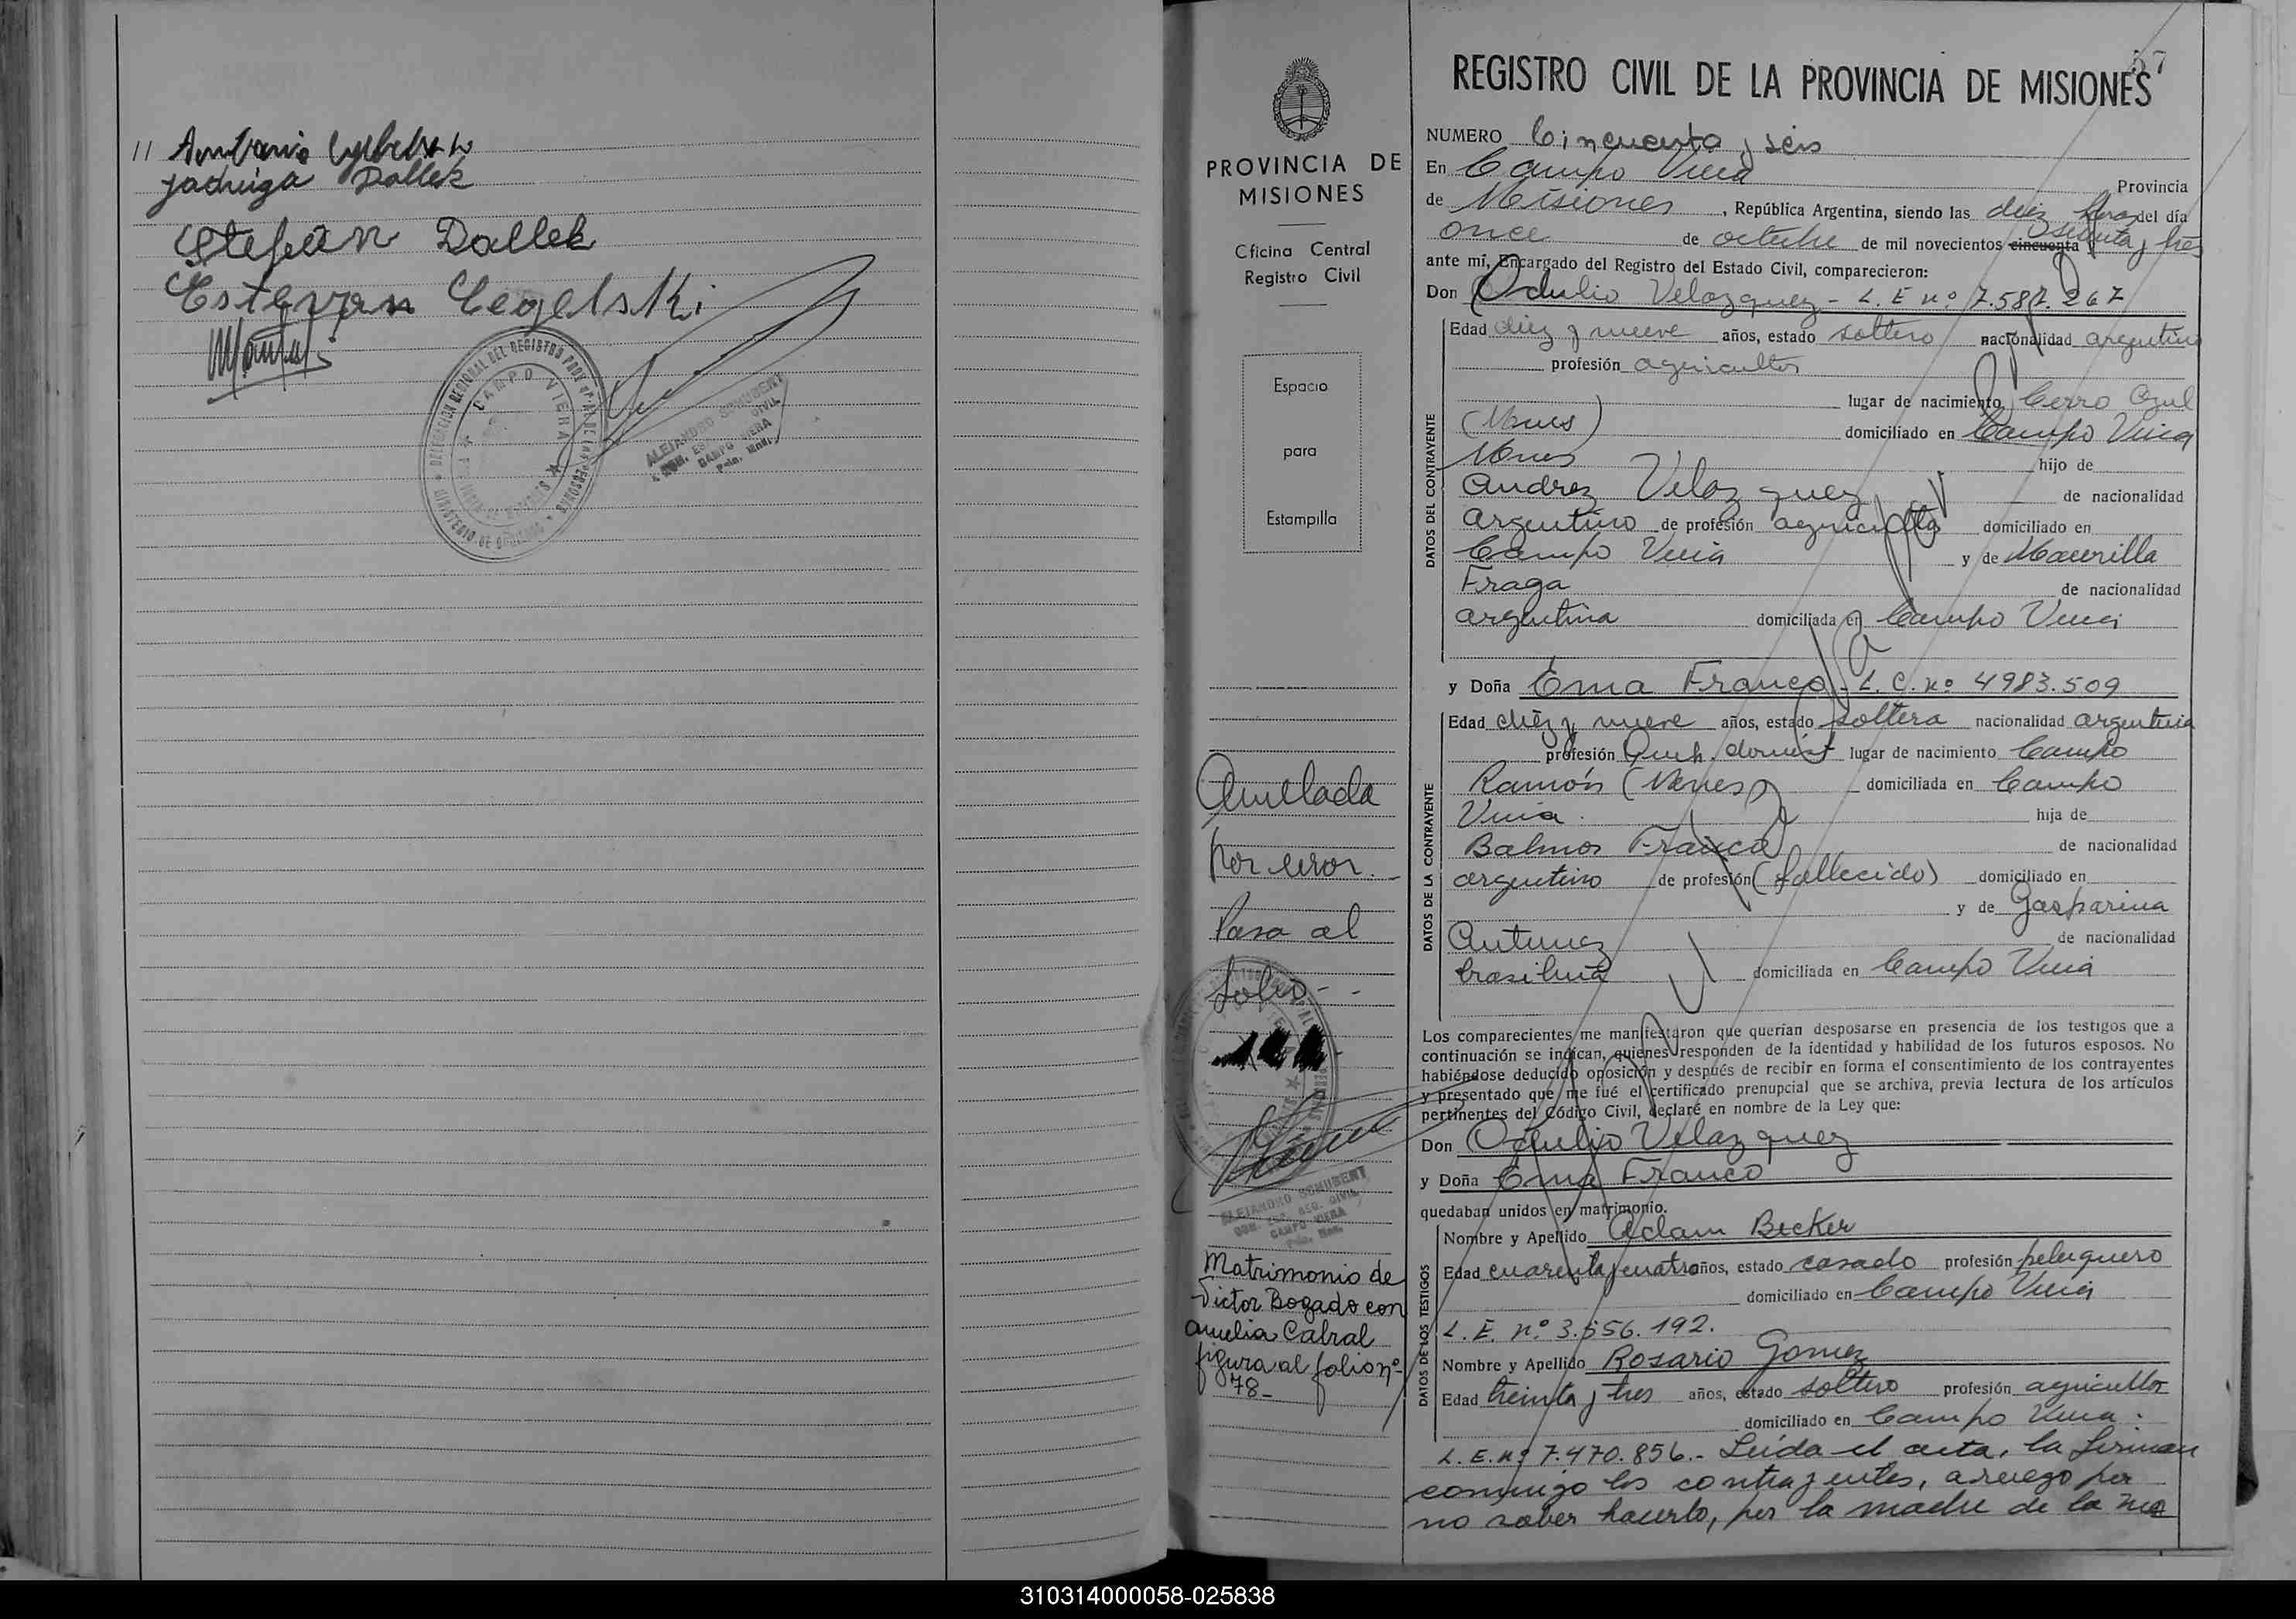 Jadwiga Dallek
Stefan Dallek
Estevan Cegelski
DELEGACION REGIONAL DEL REGISTRO
CAMPO VIERA
ALEJANDRO SCHUBERT
CAMPO VIERA
PROVINCIA DE
MISIONES
Oficina Central
Registro Civil
Espacio
para
Estampilla
Anulada
por error.
Pasa al
folio - -
ALEJANDRO SCHUBERT
CAMPO VIERA
Matrimonio de
Victor Bogado con
Amelia Cabral
figura al folio nº
78-
57
REGISTRO CIVIL DE LA PROVINCIA DE MISIONES
NUMERO Cincuenta y seis
En Campo Viera Provincia
de Misiones, República Argentina, siendo las diez horas del día
once de octubre de mil novecientos cincuenta sesenta y tres
ante mi, Encargado del Registro del Estado Civil, comparecieron:
Don Odulio Velazquez - L. E nº 7.587.267
DATOS DEL CONTRAYENTE
Edad diez y nueve años, estado soltero nacionalidad argentino
profesión agricultor
lugar de nacimiento Cerro Azul
(Mnes) domiciliado en Campo Viera
Mnes hijo de
Andrez Velazquez de nacionalidad
Argentino de profesión agricultor domiciliado en
Campo Viera y de Maurilla
Fraga de nacionalidad
argentina domiciliada en Campo Viera
y Doña Ema Franco - L. C. nº 4983.509
DATOS DE LA CONTRAYENTE
Edad diez y nueve años, estado soltera nacionalidad argentina
profesión Queh. domést lugar de nacimiento Campo
Ramón (Mnes) domiciliada en Campo
Viera. hija de
Balmor Franco de nacionalidad
argentino de profesión (fallecido) domiciliado en
y de Gasparina
Antunez de nacionalidad
brasilera domiciliada en Campo Viera
Los comparecientes me manifestaron que querían desposarse en presencia de los testigos que a
continuación se indican, quienes responden de la identidad y habilidad de los futuros esposos. No
habiéndose deducido oposición y después de recibir en forma el consentimiento de los contrayentes
y presentado que me fué el certificado prenupcial que se archiva, previa lectura de los artículos
pertinentes del Código Civil, declaré en nombre de la Ley que:
Don Odulio Velazquez
y Doña Ema Franco
quedaban unidos en matrimonio.
DATOS DE LOS TESTIGOS
Nombre y Apellido Adam Becker
Edad cuarenta y cuatro años, estado casado profesión peluquero
domiciliado en Campo Viera
L. E. nº 3.556.192.
Nombre y Apellido Rosario Gomez
Edad treinta y tres años, estado soltero profesión agricultor
domiciliado en Campo Viera.
L. E. nº 7.470.856.- Leída el acta, la firman
conmigo los contrayentes, a ruego por
no saber hacerlo, por la madre de la
310314000058-025838